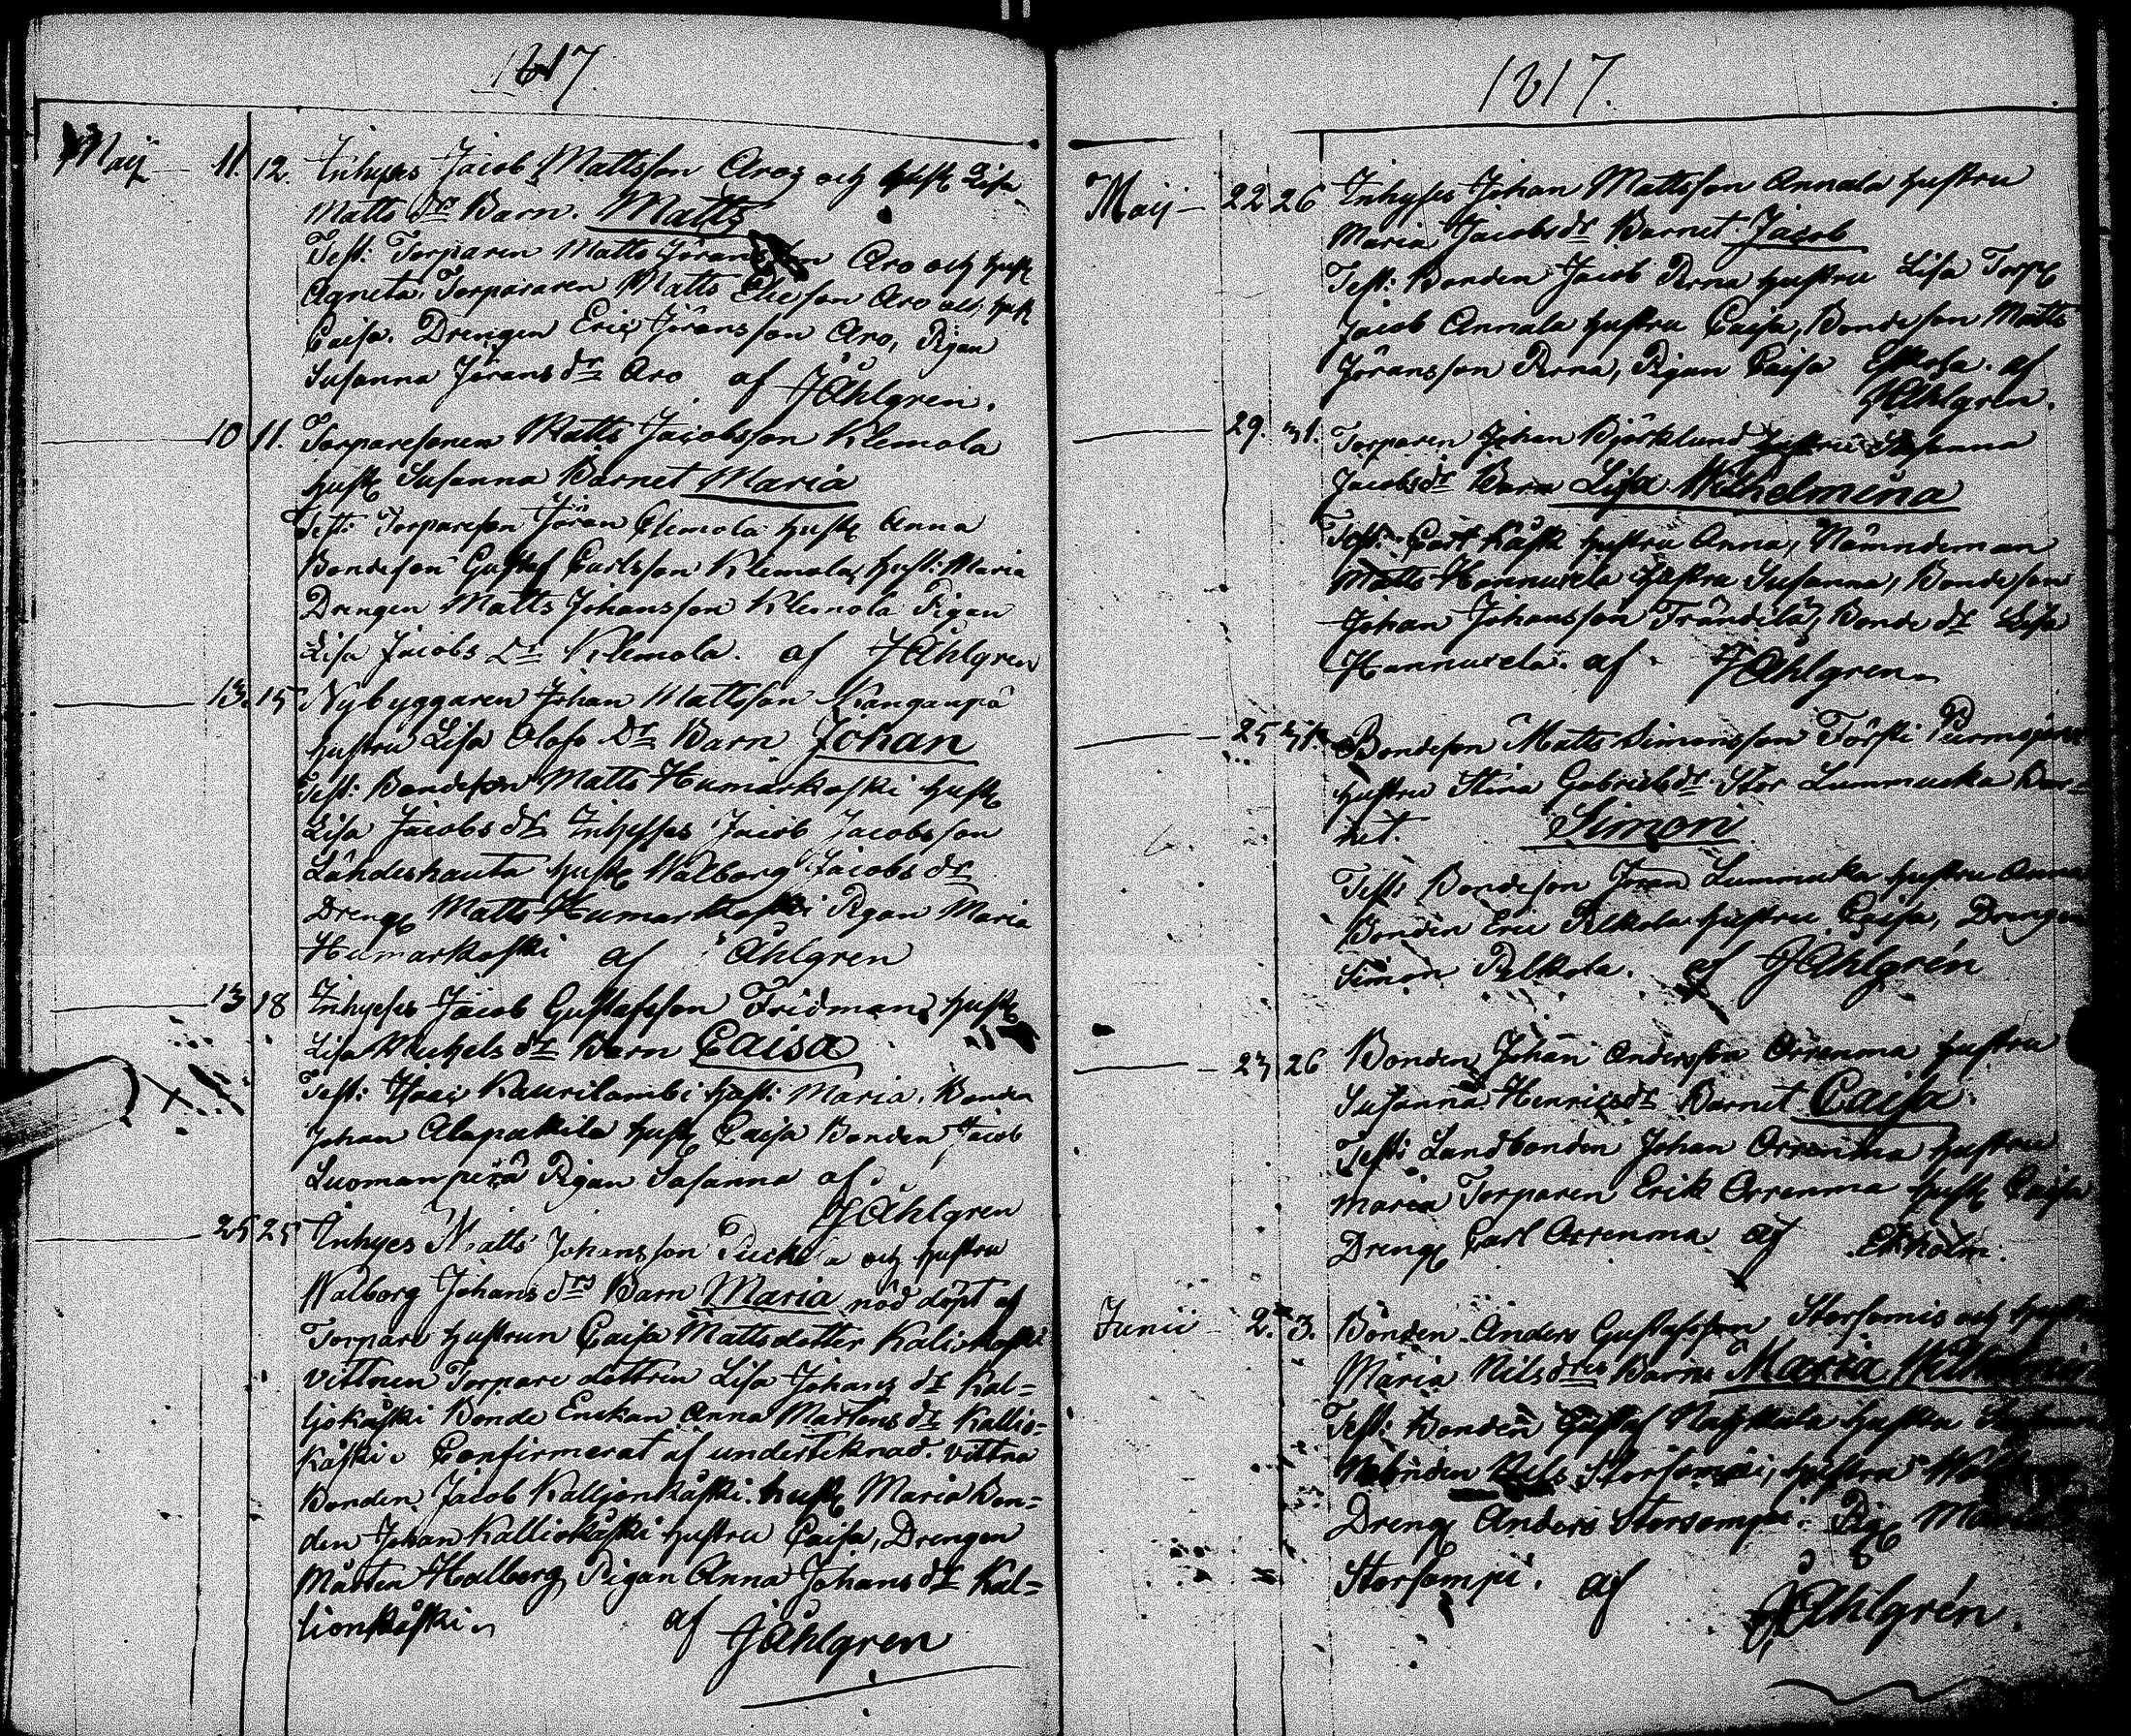 1817.
Maij 11. 12. Inhyses Jacob Mattsson Aro, och hust Lisa
Matts dr Barn. Matts
Test: Torparen Matts Jöransson Aro och hust
Agneta. Torparen Matts Eliesson Aro och hust
Caisa. Drengen Eric Jöransson Aro, Pigan
Susanna Jörans dr Aro af JÅhlgren.
10 11. Torparesonen Matts Jacobsson Klemola
hust Susanna Barnet Maria
Test: Torpareson Jöran Clemola hust Anna
Bondeson Gustaf Carlsson Klemola, hust: Maria
Drengen Matts Johansson Klemola Pigan
Lisa Jacobs Dr Klemola. af JÅhlgren
13. 15 Nybyggaren Johan Mattsson Kanganpä
hustru Lisa Olofs Dr Barn Johan
Test: Bondeson Matts Humarkoski hust
Lisa Jacobs dr Inhysses Jacob Jacobsson
Lähdeshauta hust Walborg Jacobs dr
Dreng Matts Humarkoski Pigan Maria
Humarkoski af Åhlgren
13 18 Inhyses Jacob Gustafsson Fridman, hust
Lisa Michels dr Barn Caisa
Test: Isaac Kaurilambi hust: Maria, Bonden
Johan Alapakila hust Caisa Bonden Jacob
Luomanperä Pigan Susanna af
JÅhlgren
25 25 Inhyes Matts Johansson och hustru
Walborg Johans drs Barn Maria nöd döpt af
Torpare hustrun Caisa Mattsdotter Kaliokoski
vittnen Torpare dottren Lisa Johans dr Kal=
ljokåski Bonde Enckan Anna Mårtens dr Kallio=
kåski. Confirmerat af underteknad. vittna
Bonden Jacob Kalljonkåski. hust Maria Bon=
den Johan Kalliokåski hustru Caisa, Drengen
Mårten Halberg, Pigan Anna Johans dr Kal=
lionkåski. af JÅhlgren
1817.
Maij 22 26 Inhyses Johan Mattsson Annala hustru
Maria Jacobs dr Barnet Jacob
Test: Bonden Jacob Perna hustru Lisa Torp
Jacob Annala hustru Caisa, Bondeson Matts
Jöransson Perna, Pigan Caisa af
JÅhlgren.
29. 31. Torparen Johan Björklund hustru Susanna
Jacobs dr Barn Lisa Wilhelmina
Test: Carl Kåsk hustru Anna, Nämndeman
Matts Hannuxela hustru Susanna, Bondeson
Johan Johansson Trändelä, Bonde dr Lisa
Hannuxela. af JÅhlgren.
25 31. Bondeson Matts Simonsson Törsti
hustru Stina Gabriels dr Stor Lummucka Bar=
net. Simon
Test: Bondeson Jöran Lummuka hustru Anna
Bonden Eric Pelkola hustru Caisa, Drengen
Simon Pelkola. af JÅhlgrén
23 26 Bonden Johan Andersson Orrenma hustru
Susanna Henrics dr Barnet Caisa.
Test: Landbonden Johan Orrenma hustru
Maria Torparen Erik Orrenma hust Caisa
Dreng Carl Orrenma af Ekholm.
Junii 2. 3. Bonden Anders Gustafsson Storsomis och hustru
Maria Nils dotters Barn Maria Wilhelmina
Test: Bonden Gustaf hustru
Bonden Nils Storsompi, hustru
Dreng Anders Storsompi. Pig Maria
Storsompi. af JÅhlgrén.